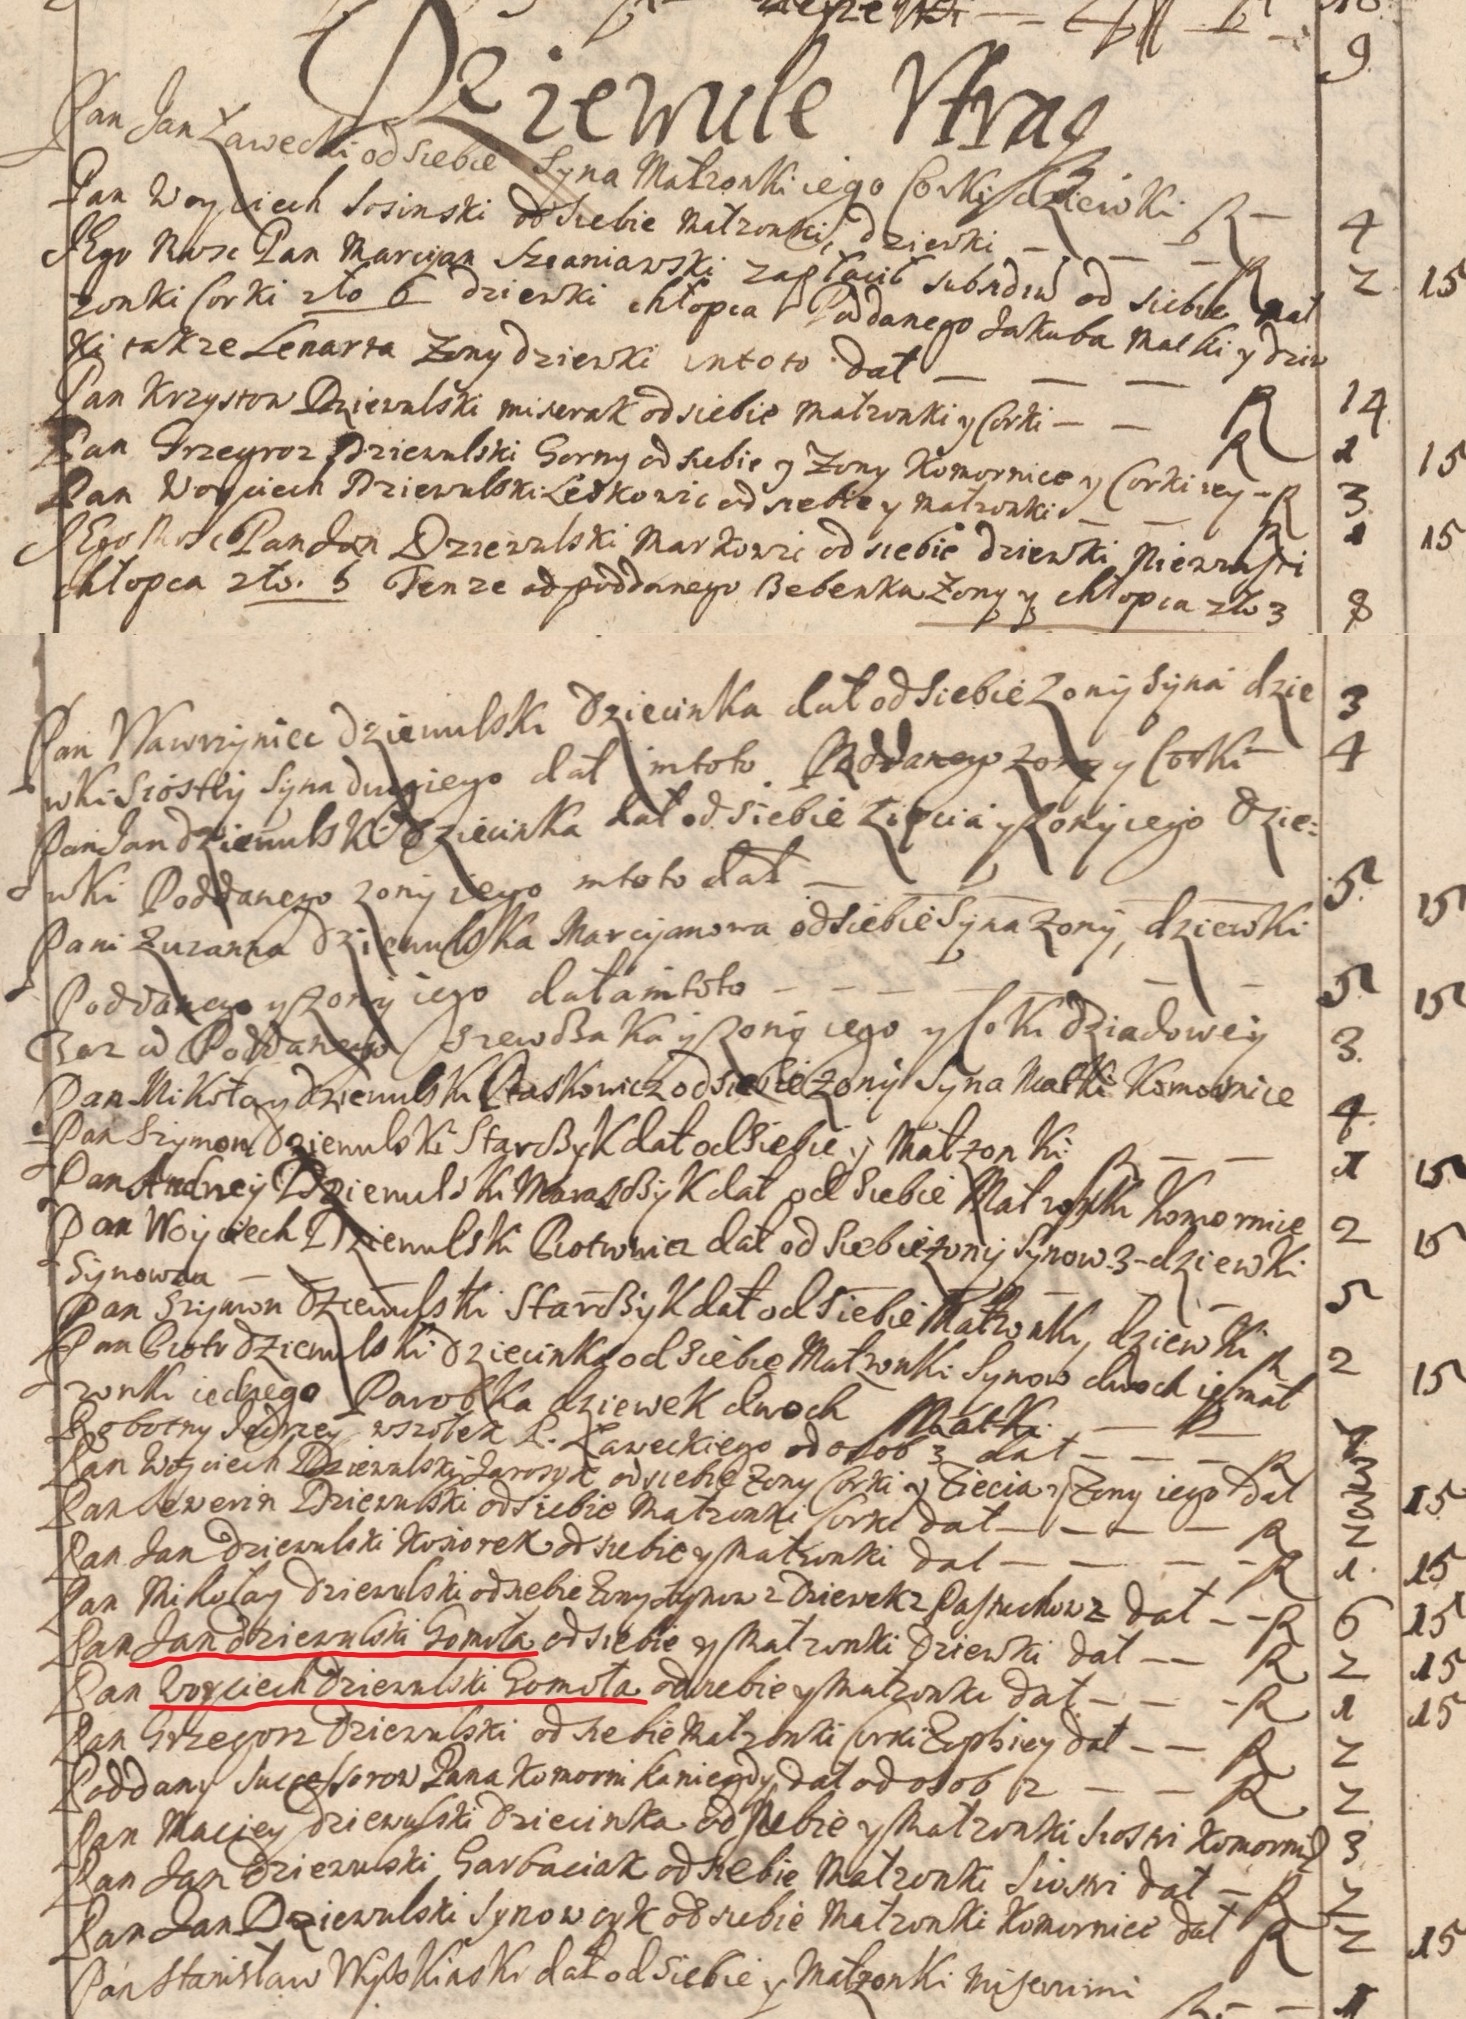 Dziewule Utraq 9
Pan Jan Zawecki od siebie Syna Małzonki iego Corki dziewki R — 4
Pan Woyciech Sosinski od siebie małzonki, dziewki — — — R 2 15
JEgo Mosc Pan Marcijan Szaniawski zapłacił subsidiu od siebie mał
zonki Corki zło 6 dziewki chłopca Poddanego Jakuba matki y dziw
ki takze Lenarta Zony dziewki intoto dał — — — R 14
Pan Krzysztow Dziewulski miserak od siebie małzonki y Corki — — R 1 15
Pan Grzegorz Dziewulski Gorny od siebie y Zony Komornice y Corki iey — R 3
Pan Woyciech Dziewulski Leskowic od siebie y małzonki — — R 1 15
JEgo Mosc Pan Jan Dziewulski Markowic od siebie dziewki Niewiasti
chłopca zło. 5 Tenze od poddanego Bebenka Zony y chłopca zło 3 8
Pan Wawrzyniec dziewulski Dziecinka dał od siebie Zony Syna dzie 3
wki Siostry Syna drugiego dał intoto Poddanego zony y Corki 4
Pan Jan dziewulski Dziecinka dał od siebie zięcia y Zony iego Dzie:
wki Poddanego zony iego intoto dał — 5 15
Pani Zuzanna dziewulska Marcyanowa od siebie Syna zony, dziewki
Poddanego y Zony iego dała intoto — — — 5 15
Poddanego y Zony iego y dziadowey 3
Pan Mikołay dziewulski Staskowicz od siebie zony Syna Matki Komornice 4
Pan Szymon Dziewulski Starczyk dał od siebie y Małzonki R — — 1 15
Pan Andrzey Dziewulski dał od siebie Małzonki Komornice 2 15
Pan Woyciech Dziewulski Piotrowicz dał od siebie zony Synow 3 dziewki
Synowca — — — 5
Pan Szymon Dziewulski Starczyk dał od siebie Małzonki, dziewki R 2 15
Pan Piotr dziewulski dziecinka od siebie Małzonki Synow dwoch i mał
zonki iednego Parobka dziewek dwoch Matki — R
Robotny Jędrzey Zaweckiego od osob 3 dał — — — R 3
Pan Woyciech Dziewulski Jarosyk od siebie Zony Corki y Ziecia y Zony iego dał 15
Pan Sewerin Dziewulski od siebie Małzonki Corki dał — — — — R 2
Pan Jan dziewulski Kosiorek od siebie y Małzonki dał — — — — R 1 15
Pan Mikołay dziewulski od siebie Zony Synow 2 Dziewek 2 Pastuchow 2 dał — — R 6 15
Pan Jan dziewulski Gomoła od siebie y Małzonki dziewki dał — — R 2 15
Pan Woyciech Dziewulski Gomoła od siebie y Małzonki dał — — — R 1 15
Pan Grzegorz Dziewulski od siebie Małzonki Corki Zophiey dał — — R 2
Poddany Successorow Pana Komornika niegdy dał od osob 2 — — R 2
Pan Maciey dziewulski Dziecinka od siebie y Małzonki Siostri Komorni 3
Pan Jan Dziewulski Garbaciak od siebie Małzonki Siostri dał — R 2
Pan Jan Dziewulski Synowczyk od siebie Małzonki Komornice dał R 2 15
Pan Stanisław Wyłskinski dał od siebie y Małzonki Miserrimi R — — 1